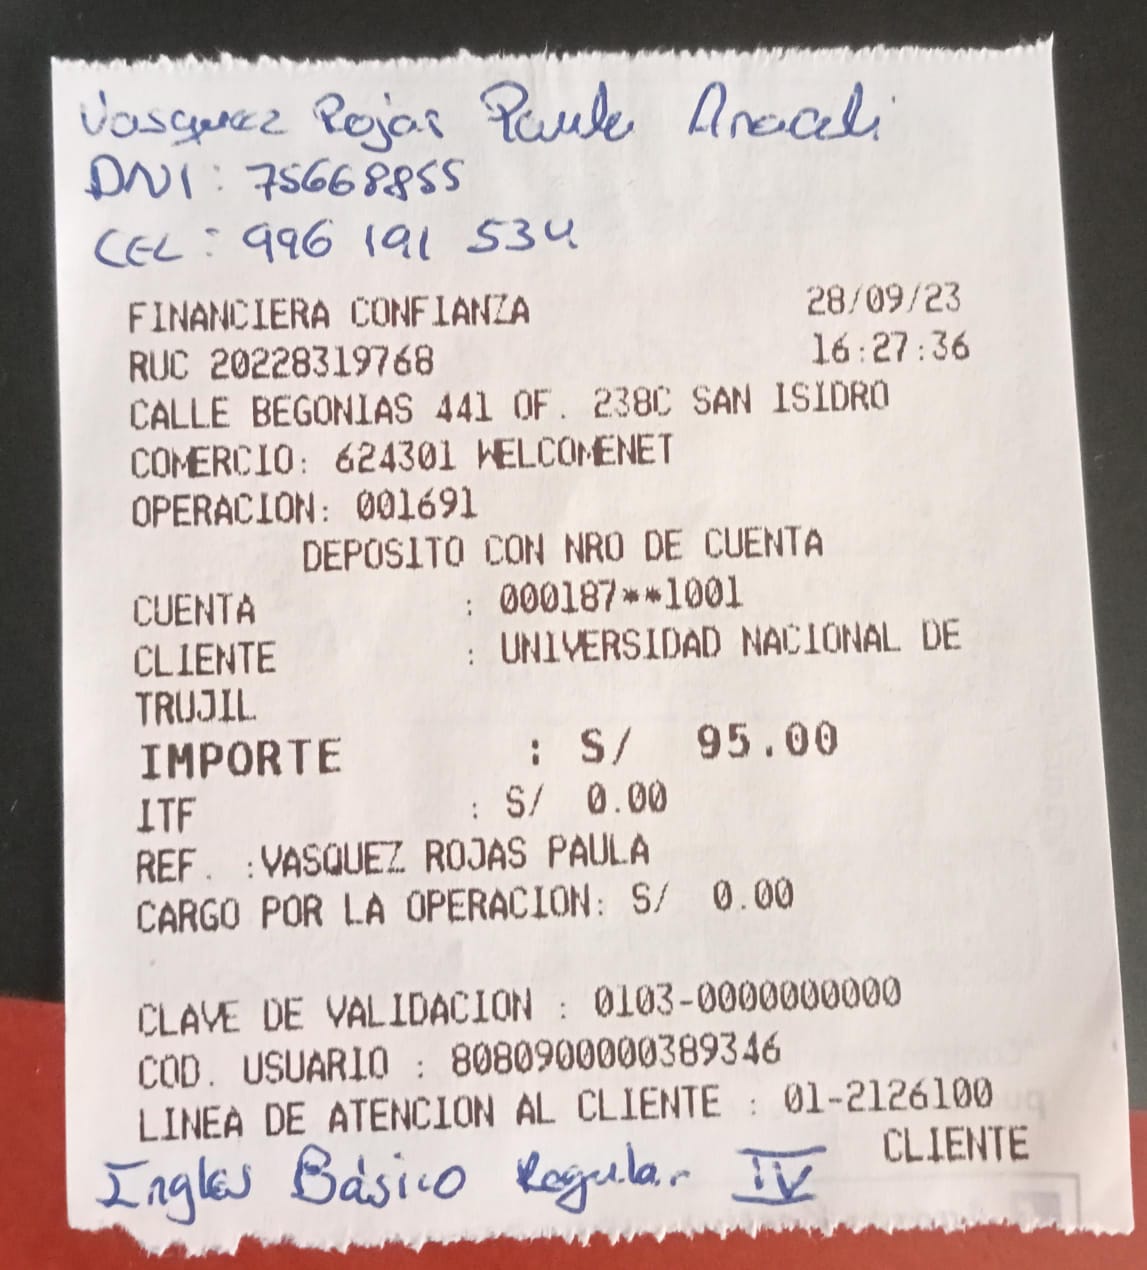 Vasquez Rojas Paula Araceli
DNI: 75668855
CEL: 996 191 534
FINANCIERA CONFIANZA 28/09/23
RUC 20228319768 16:27:36
CALLE BEGONIAS 441 OF. 238C SAN ISIDRO
COMERCIO: 624301 WELCOMENET
OPERACION: 001691
DEPOSITO CON NRO DE CUENTA
CUENTA : 000187**1001
CLIENTE : UNIVERSIDAD NACIONAL DE
TRUJIL
IMPORTE : S/ 95.00
ITF : S/ 0.00
REF. :VASQUEZ ROJAS PAULA
CARGO POR LA OPERACION: S/ 0.00
CLAVE DE VALIDACION : 0103-0000000000
COD. USUARIO : 8080900000389346
LINEA DE ATENCION AL CLIENTE : 01-2126100
CLIENTE
Ingles Básico Regular IV